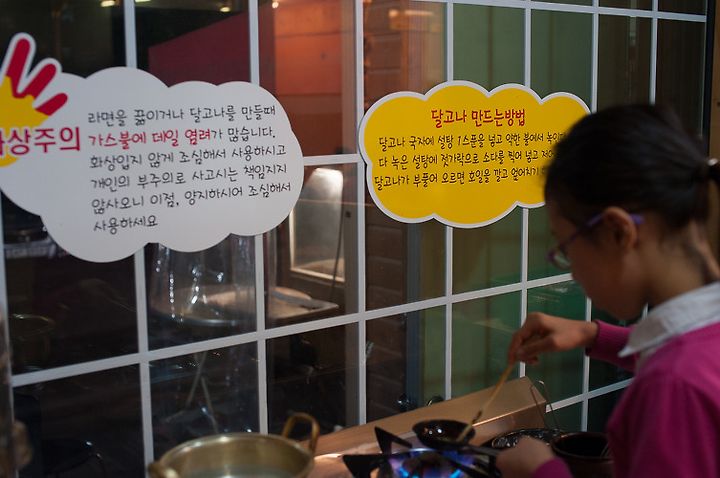 화상주의
라면을 끓이거나 달고나를 만들때
가스불에 데일 염려가 많습니다.
화상입지 않게 조심해서 사용하시고
개인의 부주의로 사고시는 책임지지
않사오니 이점, 양지하시어 조심해서
사용하세요
달고나 만드는방법
달고나 국자에 설탕 1스푼을 넣고 약한 불에서 녹이다
다 녹은 설탕에 젓가락으로 소다를 찍어 넣고 저어
달고나가 부풀어 오르면 호일을 깔고 엎어치기